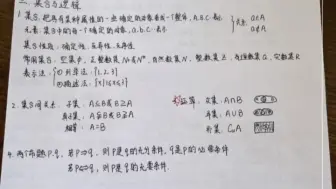 二、集合与逻辑
1. 集合: 把具有某种属性的一些确定的对象看成一个整体, A.B.C 表示
元素: 集合中的每一个确定的对象, a.b.c 表示
关系 a∈A
a∉A
集合性质: 确定性, 互异性, 无序性
常用集合: 空集∅, 正整数集N₊或N*, 自然数集N, 整数集Z, 有理数集Q, 实数集R
表示法: ①列举法: {1, 2, 3}
②描述法:
2. 集合间关系: 子集: A⊆B或B⊇A
真子集: A⫋B或B⫌A
相等: A=B
3. 运算: 交集: A∩B
并集: A∪B
补集: CᵤA
4. 两个命题P.q, 若P⇒q, 则P是q的充分条件, q是P的必要条件
若P⇔q, 则P是q的充要条件